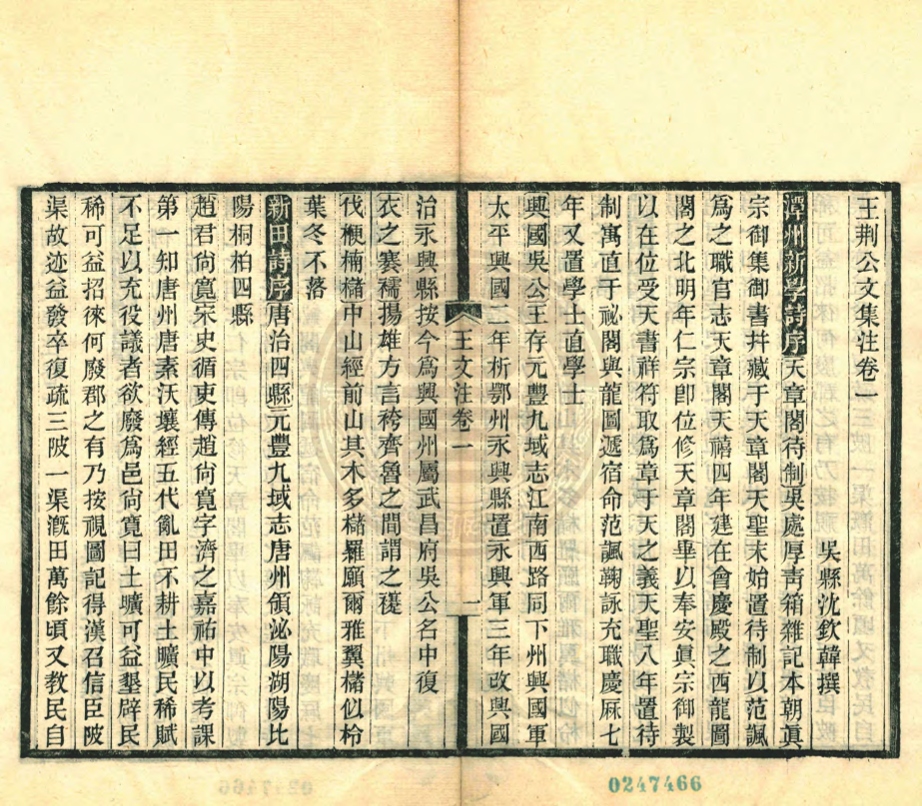 王荊公文集注卷一
吳縣沈欽韓撰
潭州新學詩序天章閣待制吳處厚青箱雜記本朝眞
宗御集御書幷藏于天章閣天聖末始置待制以范諷
爲之職官志天章閣天禧四年建在會慶殿之西龍圖
閣之北明年仁宗卽位修天章閣畢以奉安眞宗御製
以在位受天書祥符取爲章于天之義天聖八年置待
制寓直于祕閣與龍圖遞宿命范諷鞠詠充職慶厤七
年又置學士直學士
興國吳公王存元豐九域志江南西路同下州興國軍
太平興國二年析鄂州永興縣置永興軍三年改興國
王文注卷一
一
治永興縣按今爲興國州屬武昌府吳公名中復
衣之褰襦揚雄方言袴齊魯之間謂之䙭
伐梗楠櫧中山經前山其木多櫧羅願爾雅翼櫧似柃
葉冬不落
新田詩序唐治四縣元豐九域志唐州領泌陽湖陽比
陽桐柏四縣
趙君尙寬宋史循吏傳趙尙寬字濟之嘉祐中以考課
第一知唐州唐素沃壤經五代亂田不耕土曠民稀賦
不足以充役議者欲廢爲邑尙寬曰土曠可益墾辟民
稀可益招徠何廢郡之有乃按視圖記得漢召信臣陂
渠故迹益發卒復疏三陂一渠漑田萬餘頃又敎民自
0247466